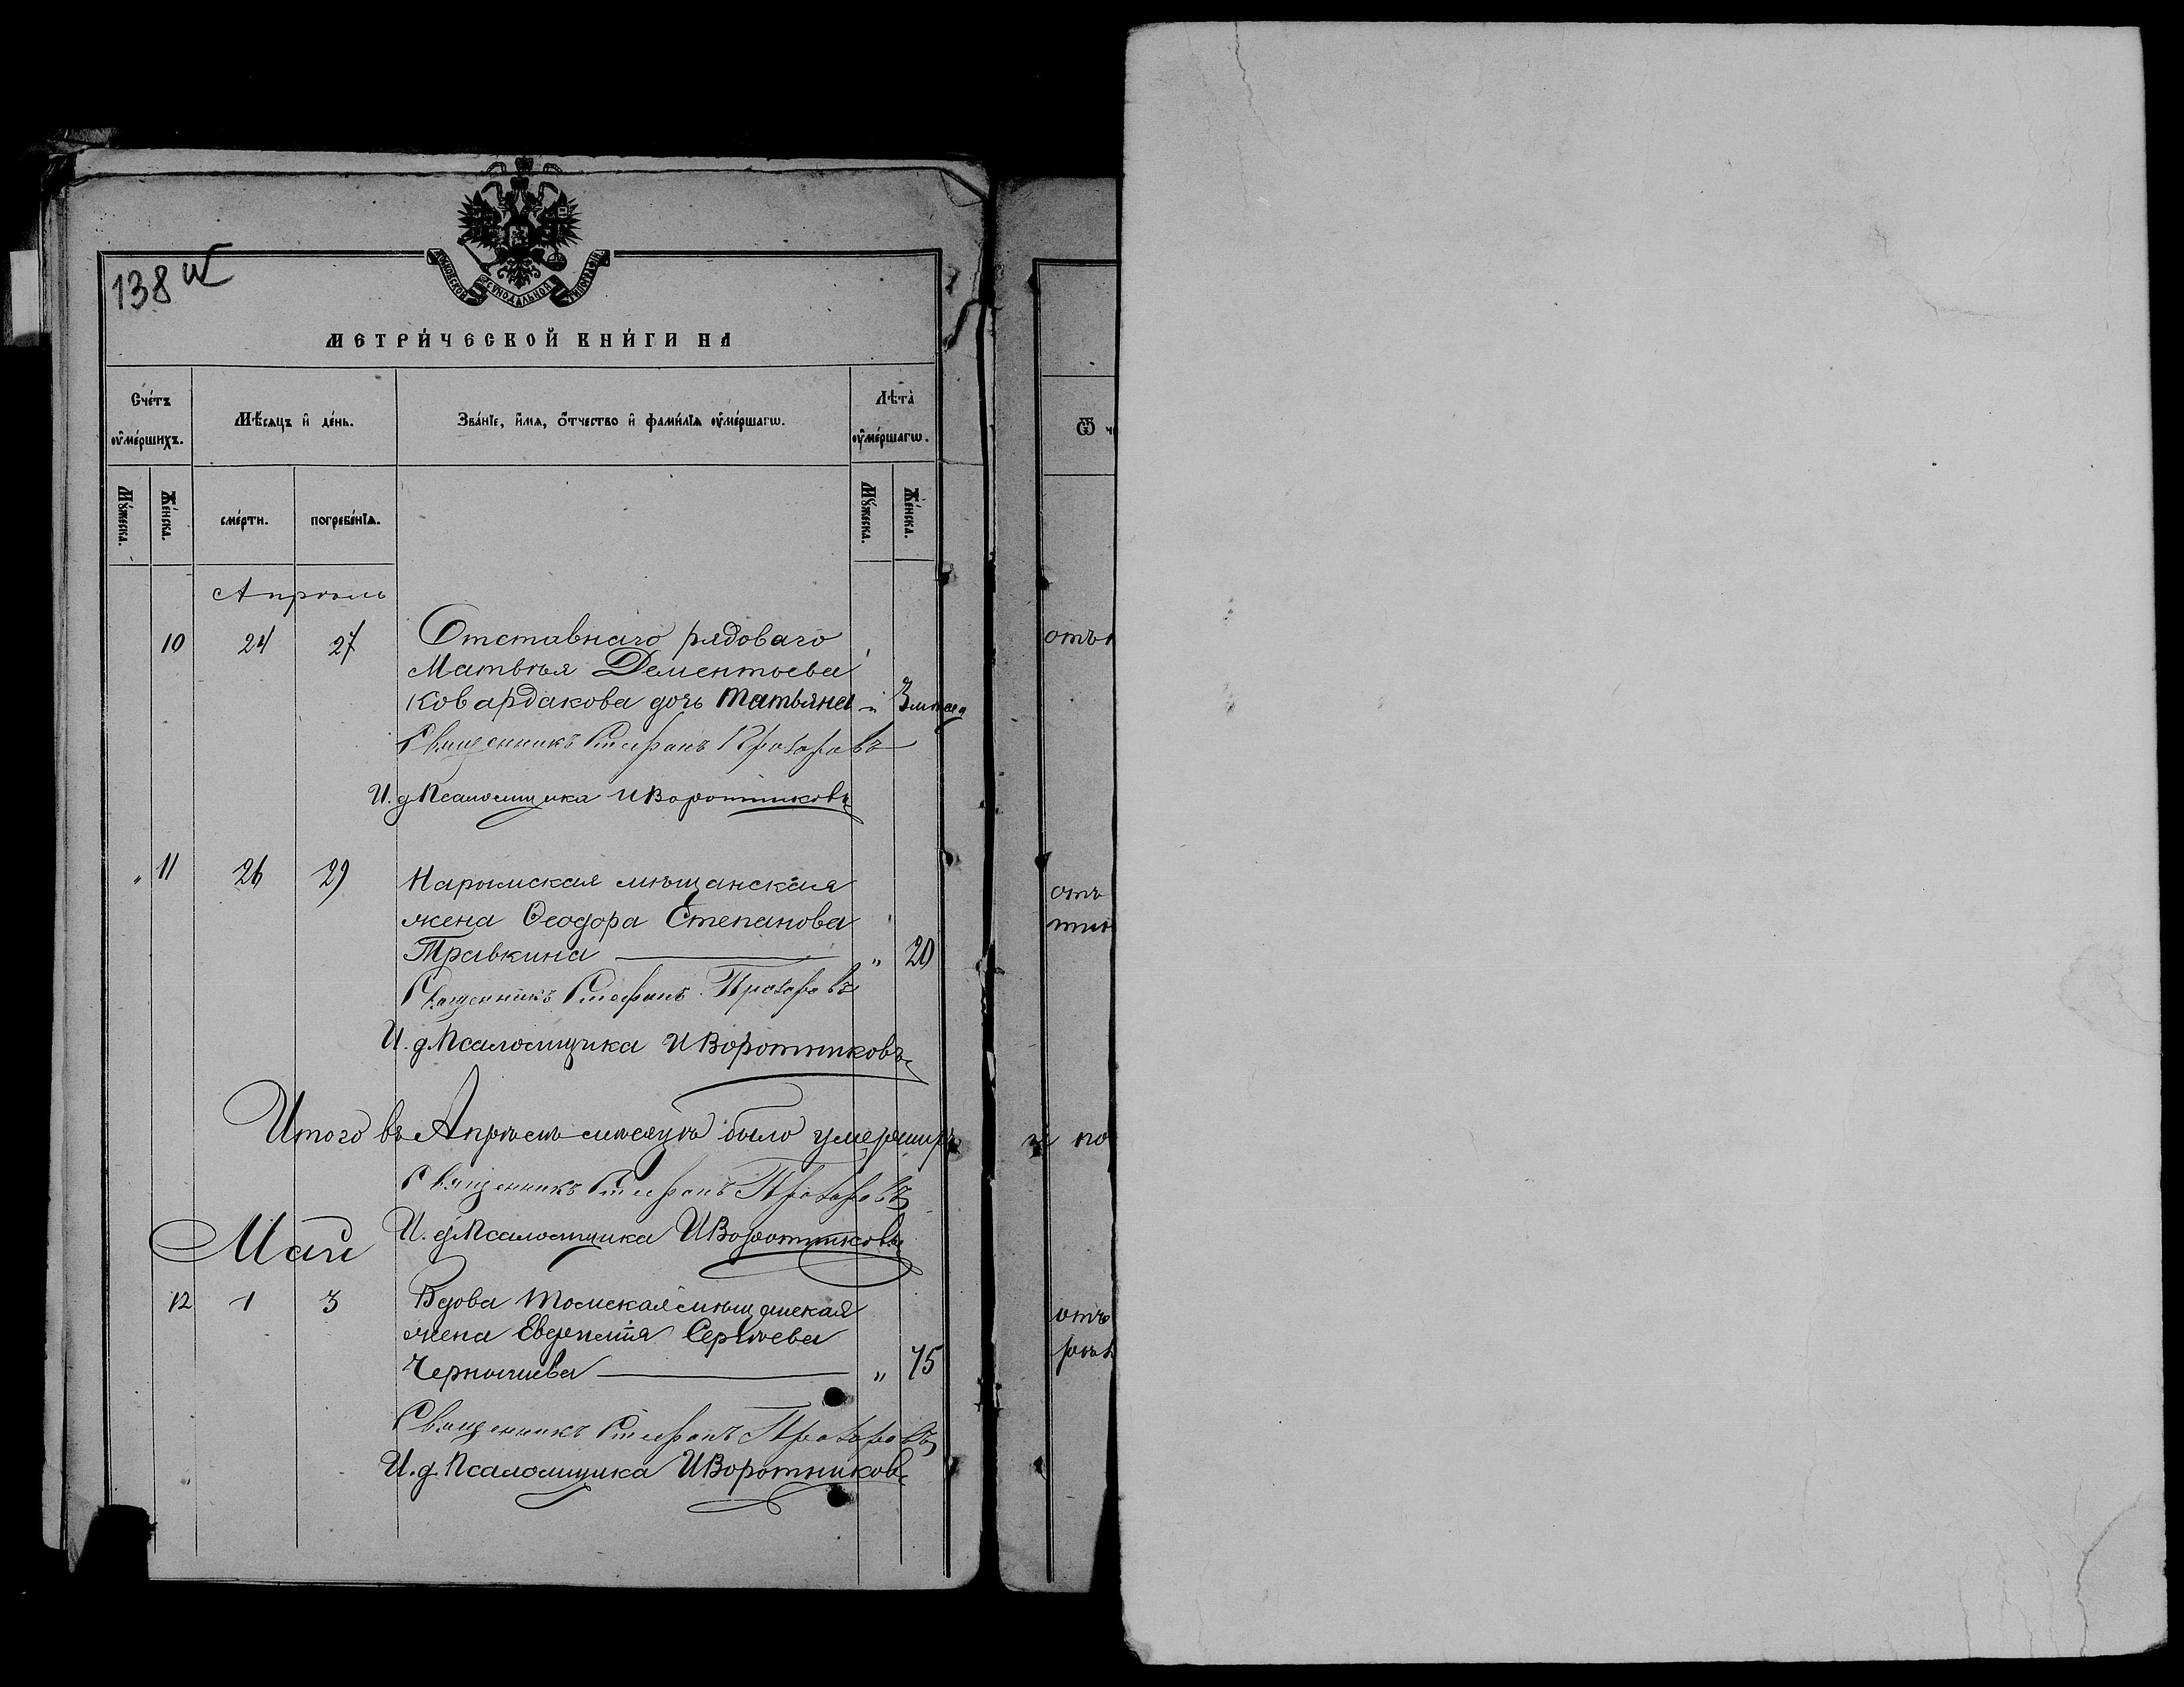 138 об
МОСКОВСКОЙ СѴНОДАЛЬНОЙ ТИПОГРАФІИ
МЕТРИ́ЧЕСКОЙ КНИ́ГИ НА
Сче́тъ оу҆ме́ршихъ.
Мѣ́сяцъ и҆ де́нь.
Зва́нїе, и҆́мѧ, ѻ҆́тчество и҆ фами́лїѧ оу҆ме́ршагѡ.
Лѣта̀ оу҆ме́ршагѡ.
Мꙋ́жеска.
Же́нска.
сме́рти.
погребе́нїѧ.
Мꙋ́жеска.
Же́нска.
Апрѣль
10 24 27 Отставнаго рядоваго
Матвѣя Дементьева
Ковардакова дочь Татьяна „ 3
Священникъ Стефанъ Прозоровъ
И. д Псаломщика И Воротниковъ
„ 11 26 29 Нарымская мѣщанская
жена Ѳеодора Степанова
Травкина „ 20
Священникъ Стефанъ Прозоровъ
И. д Псаломщика И Воротниковъ
Итого въ Апрѣлѣ мѣсяцѣ было умершихъ
Священникъ Стефанъ Прозоровъ
И. д Псаломщика И Воротниковъ
Май
12 1 3 Вдова Томская мѣщанская
жена Евдокія Сергѣева
Чернышева „ 75
Священникъ Стефанъ Прозоровъ
И. д. Псаломщика И Воротниковъ
Ѿ
отъ
отъ
по
отъ